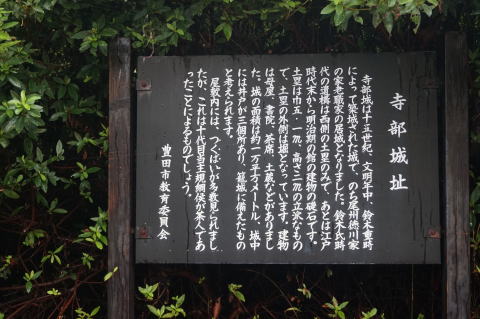 寺部城址
寺部城は十五世紀、文明年中、鈴木重時
によって築城された城で、のち尾州徳川家
の家老職家の居城となりました。鈴木氏時
代の遺構は西側の土塁のみで、あとは江戸
時代末から明治期の館の建物の礎石です。
土塁は巾五・一㍍、高さ三㍍の立派なもの
で、土塁の外側は堀となっています。建物
は母屋、書院、茶席、土蔵などがありまし
た。城の面積は約一万平方メートル、城中
には井戸が三個所あり、籠城に備えたもの
と考えられます。
屋敷内には、つくばいが多数見られまし
たが、これは十代目当主規綱侯が茶人であ
ったことによるものでしょう。
豊田市教育委員会